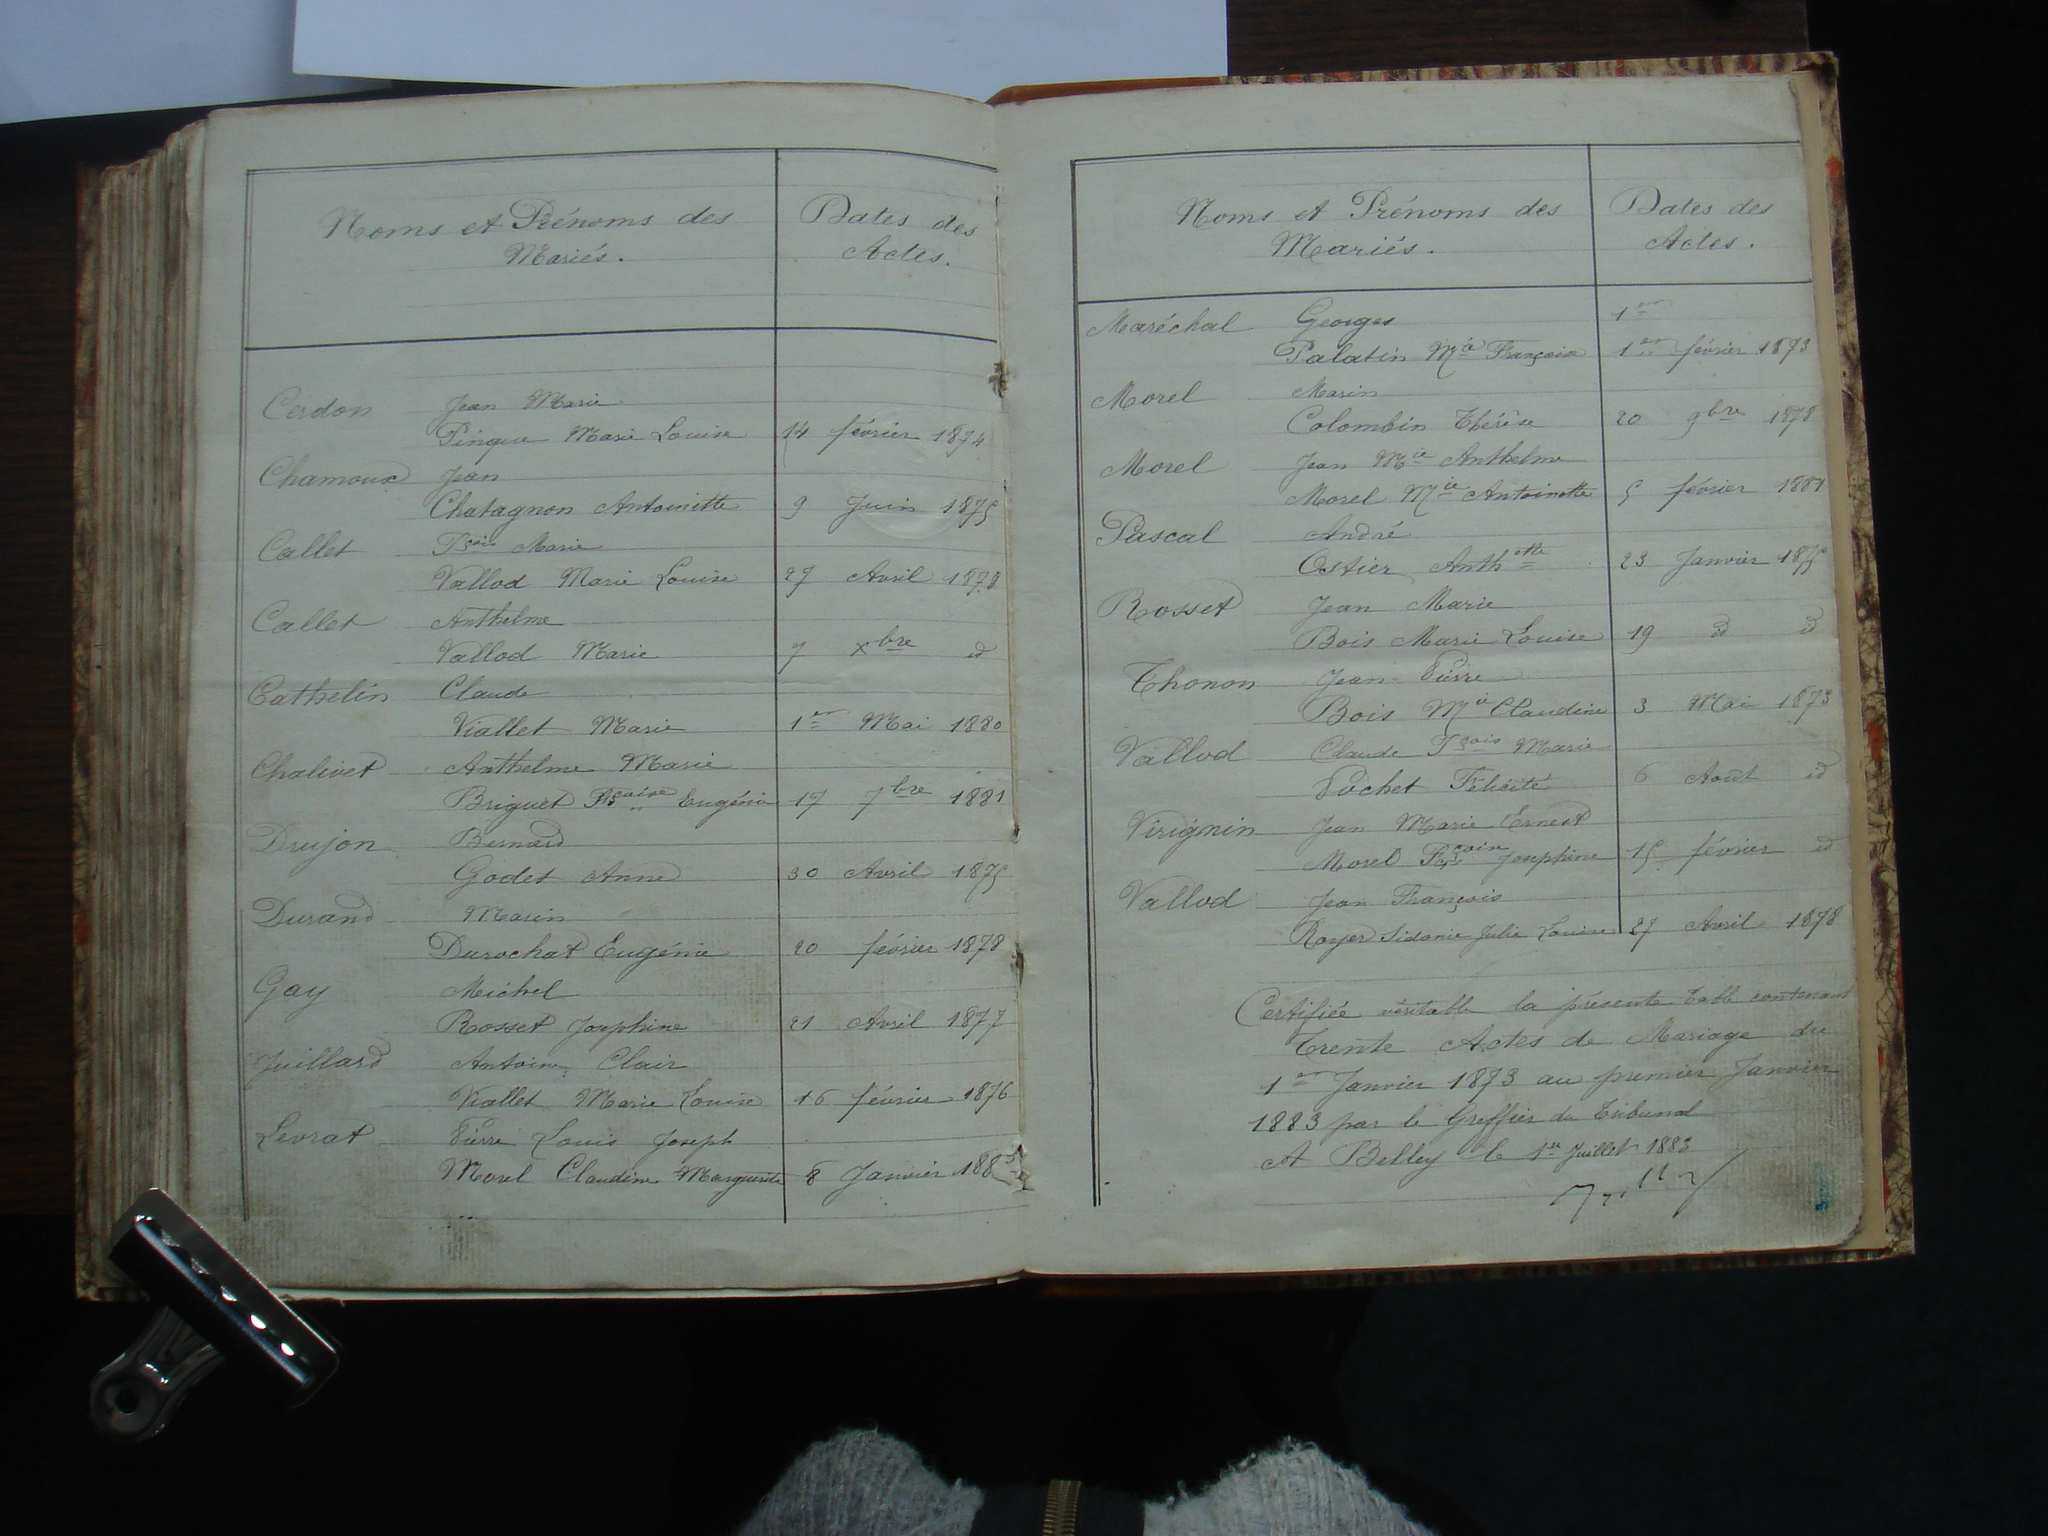 Noms et Prénoms des Dates des
Mariés. Actes.
Cerdon Jean Marie
Pingue Marie Louise 14 février 1874
Chamoux Jean
Chatagnon Antoinette 9 Juin 1875
Callet Fçois Marie
Vallod Marie Louise 27 Avril 1879
Callet Anthelme
Vallod Marie 7 xbre id
Cathelin Claude
Viallet Marie 1er Mai 1880
Chalivet Anthelme Marie
Briguet Eugénie 17 7bre 1881
Drujon Bernard
Godet Anne 30 Avril 1875
Durand Marin
Durochat Eugénie 20 février 1878
Gay Michel
Rosset Josephine 21 Avril 1877
Juillard Antoine Clair
Viallet Marie Louise 16 février 1876
Levrat Pierre Louis Joseph
Morel Claudine Marguerite 8 Janvier
Noms et Prénoms des Dates des
Mariés. Actes.
Maréchal Georges 1er
Palatin Mie Françoise 1er février 1873
Morel Marin
Colombin Thérèse 20 9bre 1878
Morel Jean Mie Anthelme
Morel Mie Antoinette 5 février 1881
Pascal André
Ostier Anthette 23 Janvier 1875
Rosset Jean Marie
Bois Marie Louise 19 id id
Thonon Jean Pierre
Bois Mie Claudine 3 Mai 1873
Vallod Claude Fçois Marie
Pochet Félicité 6 Août id
Virignin Jean Marie Ernest
Morel Fçoise Josephine 15 février id
Vallod Jean François
Royer Sidonie Julie Louise 27 Avril 1878
Certifiée véritable la présente table contenant
Trente Actes de Mariage du
1er Janvier 1873 au premier Janvier
1883 par le Greffier du Tribunal
A Belley le 1er Juillet 1883